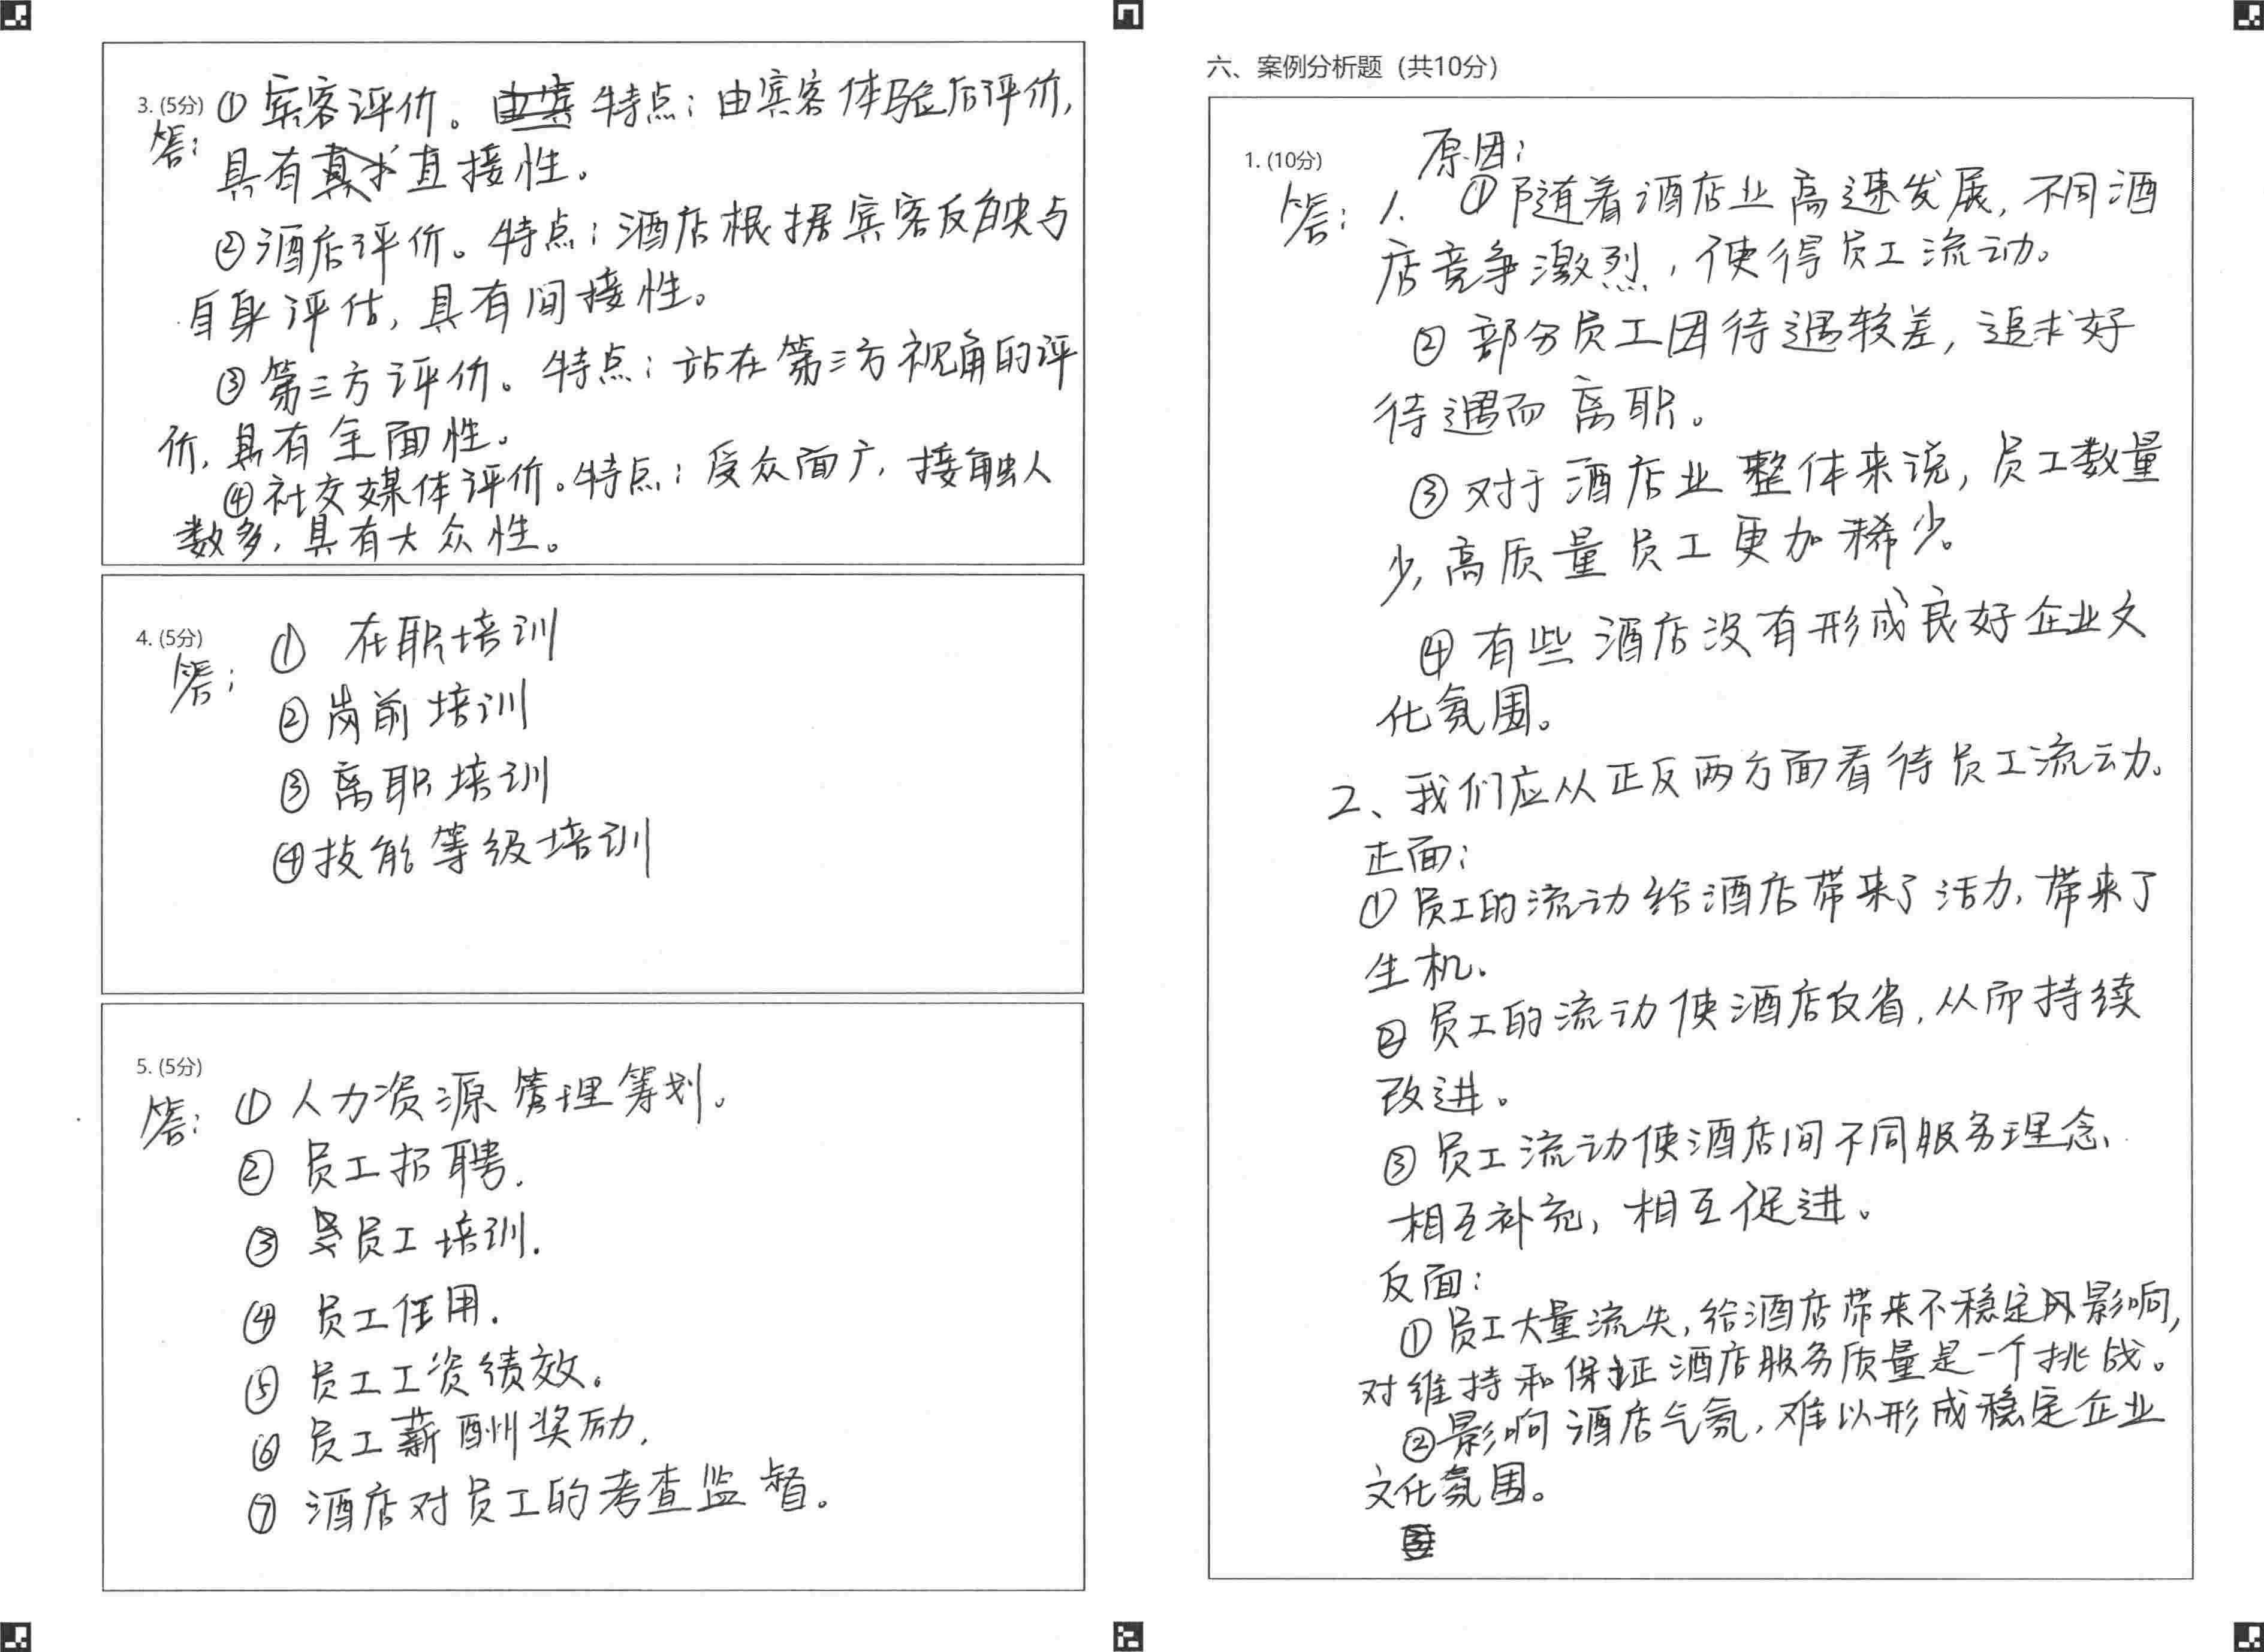 3. (5分) ① 宾客评价。特点：由宾客体验后评价，
答：具有直接性。
②酒店评价。特点：酒店根据宾客反映与
自身评估，具有间接性。
③第三方评价。特点：站在第三方视角的评
价，具有全面性。
④社交媒体评价。特点：受众面广，接触人
数多，具有大众性。
4. (5分)
答：① 在职培训
②岗前培训
③离职培训
④技能等级培训
5. (5分)
答：①人力资源管理筹划。
② 员工招聘.
③ 员工培训.
④ 员工任用.
⑤ 员工工资绩效。
⑥ 员工薪酬奖励.
⑦ 酒店对员工的考查监督。
六、案例分析题（共10分）
1. (10分) 原因：
答：1、①随着酒店业高速发展，不同酒
店竞争激烈，使得员工流动。
② 部分员工因待遇较差，追求好
待遇而离职。
③ 对于酒店业整体来说，员工数量
少，高质量员工更加稀少。
④ 有些酒店没有形成良好企业文
化氛围。
2、我们应从正反两方面看待员工流动。
正面：
①员工的流动给酒店带来了活力，带来了
生机.
② 员工的流动使酒店反省，从而持续
改进。
③ 员工流动使酒店间不同服务理念、
相互补充，相互促进。
反面：
①员工大量流失，给酒店带来不稳定影响，
对维持和保证酒店服务质量是一个挑战。
②影响酒店气氛，难以形成稳定企业
文化氛围。